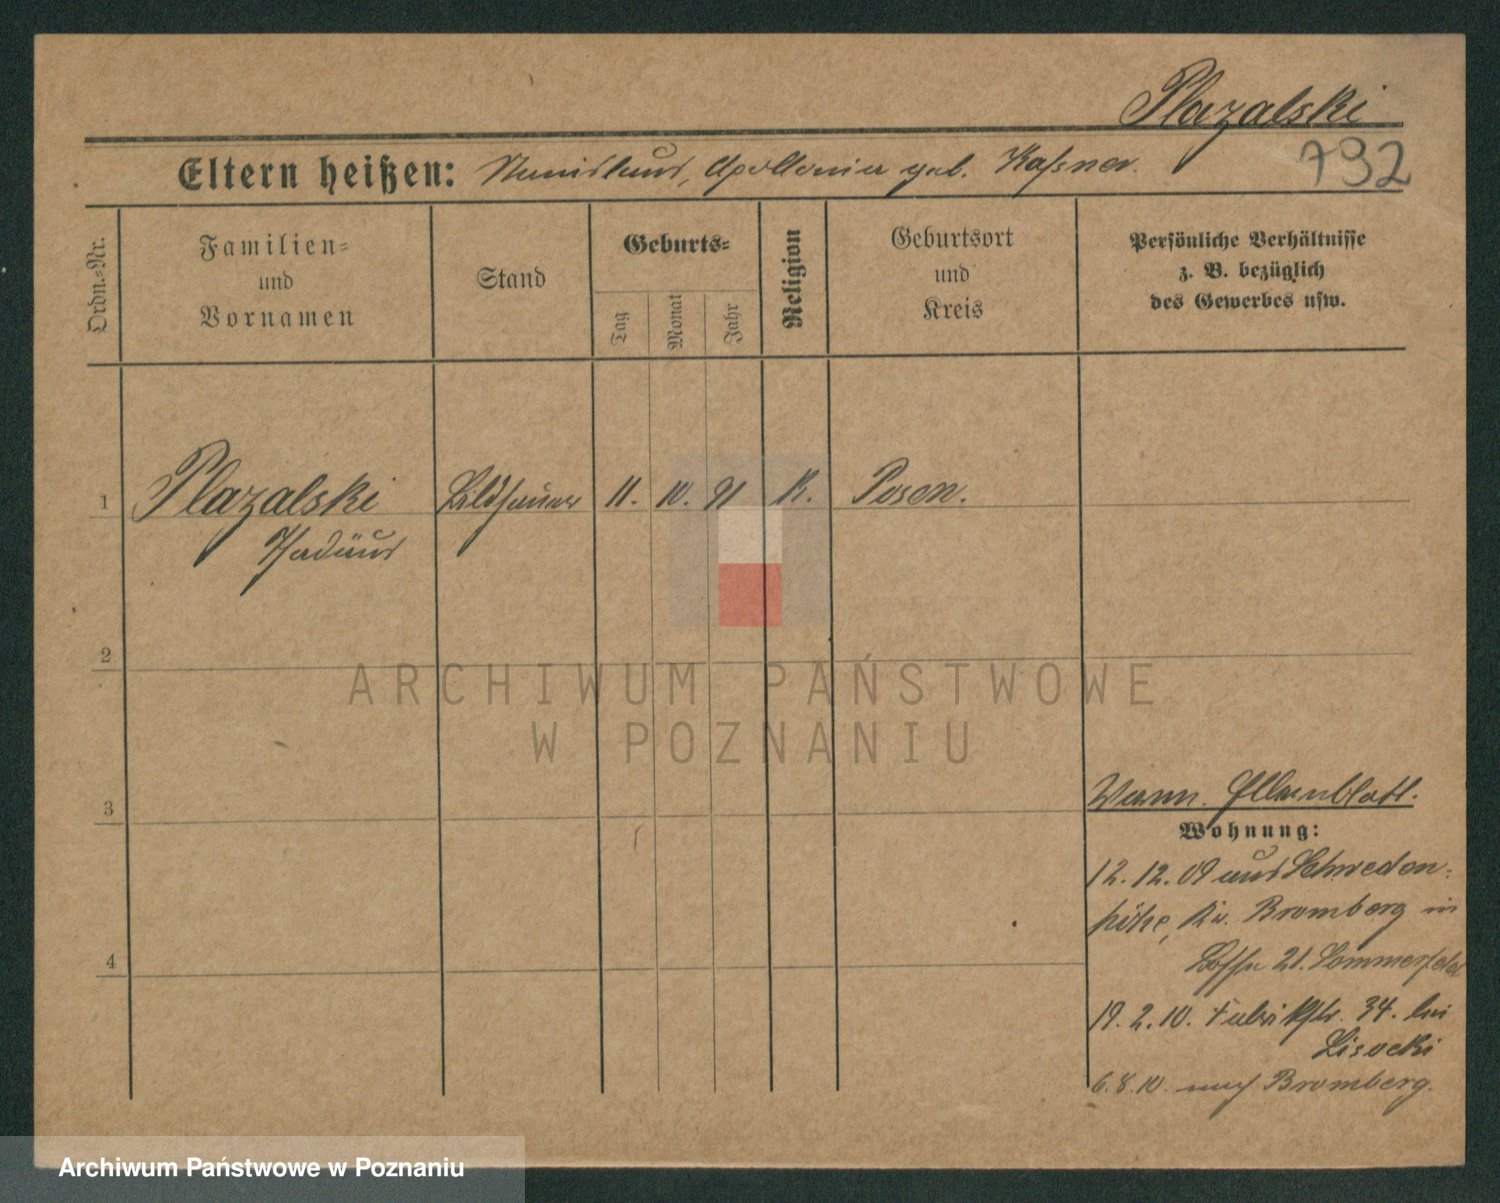 Plazalski
792
Eltern heißen: Stanislaus, Apollonia geb. Kaßner.
Ordn.=Nr.
Familien=
und
Vornamen
Stand
Geburts=
Tag
Monat
Jahr
Religion
Geburtsort
und
Kreis
Persönliche Verhältnisse
z. B. bezüglich
des Gewerbes usw.
1 Plazalski Bildhauer 11. 10. 91 K. Posen.
Thadäus
2
ARCHIWUM PAŃSTWOWE
W POZNANIU
3
4
Wohnung:
12. 12. 09 aus Schweden=
höhe, Kr. Bromberg in
21. Sommerfeld
19. 2. 10. Fabrikstr. 34. bei
Lisocki
6. 8. 10. nach Bromberg.
Archiwum Państwowe w Poznaniu